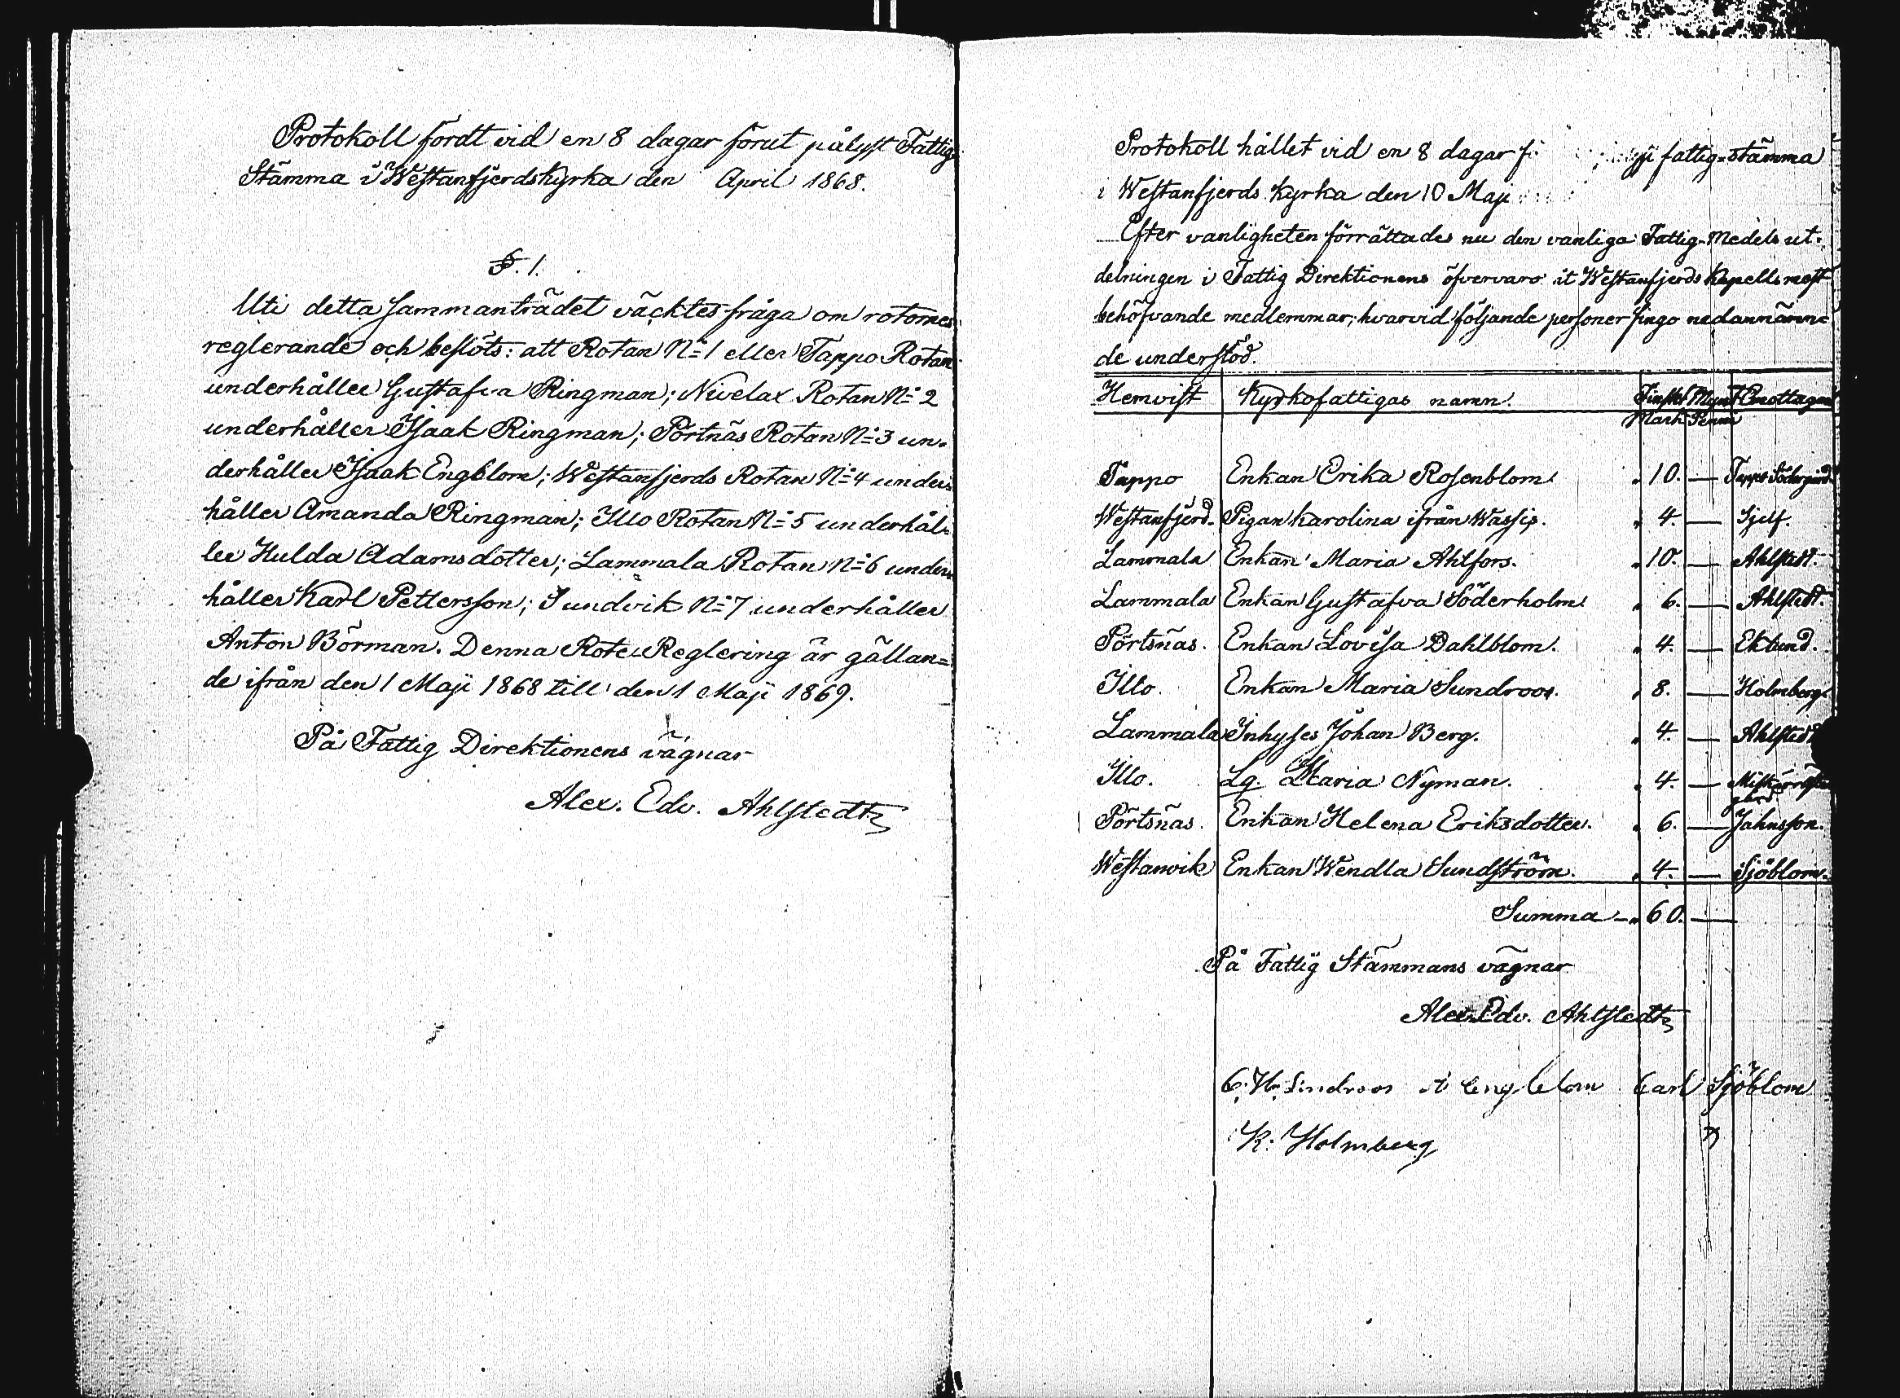 Protokoll fördt vid en 8 dagar förut pålyst Fattig
Stämma i Westanfjerds Kyrka den April 1868.
§. 1.
Uti detta sammanträdet väcktes fråga om rotornes
reglerande och beslöts: att Rotan N:o 1 eller Tappo Rotan
underhåller Gustafva Ringman; Nivelax Rotan N:o 2
underhåller Isaak Ringman; Pörtnäs Rotan N:o 3 un-
derhåller Isaak Engblom; Westanfjerds Rotan N:o 4 under-
håller Amanda Ringman; Illo Rotan N:o 5 underhål-
ler Hulda Adamsdotter; Lammala Rotan N:o 6 under-
håller Karl Pettersson; Sundvik N:o 7 underhåller
Anton Börman. Denna Rote Reglering är gällan=
de ifrån den 1 Maji 1868 till den 1 Maji 1869.
På Fattig Direktionens vägnar
Alex. Edv. Ahlstedt
Protokoll hållet vid en 8 dagar fattig=stämma
i Westanfjerds Kyrka den 10 Maji
Efter vanligheten förrättades nu den vanliga Fattig-Medels ut-
delningen i Fattig Direktionens öfvervaro åt Westanfjerds Kapells mest
behöfvande medlemmar; hvarvid följande personer fingo nedannämn=
de understöd.
Hemvist Kyrkofattigas namn. Finskt Mynt Emottagare
Mark Penni
Tappo Enkan Erika Rosenblom „ 10. — Tappo Södergård
Westanfjerd. Pigan Karolina ifrån Wassis. „ 4. — Sjelf.
Lammala Enkan Maria Ahlfors. „ 10. — Ahlstedt.
Lammala Enkan Gustafva Söderholm „ 6. — Ahlstedt.
Pörtsnäs. Enkan Lovisa Dahlblom. „ 4. — Eklund.
Illo. Enkan Maria Sundroos. „ 8. — Holmberg.
Lammala Inhyses Johan Berg. „ 4. — Ahlstedt
Illo. Lg. Maria Nyman. „ 4. —
Pörtsnäs. Enkan Helena Eriksdotter. „ 6. — Jahnsson.
Westanvik Enkan Wendla Sundström. „ 4. — Sjöblom.
Summa — „ 60. —
På Fattig Stämmans vägnar
Alex. Edv. Ahlstedt
C. H. Lindroos A Engblom Carl Sjöblom
K. Holmberg